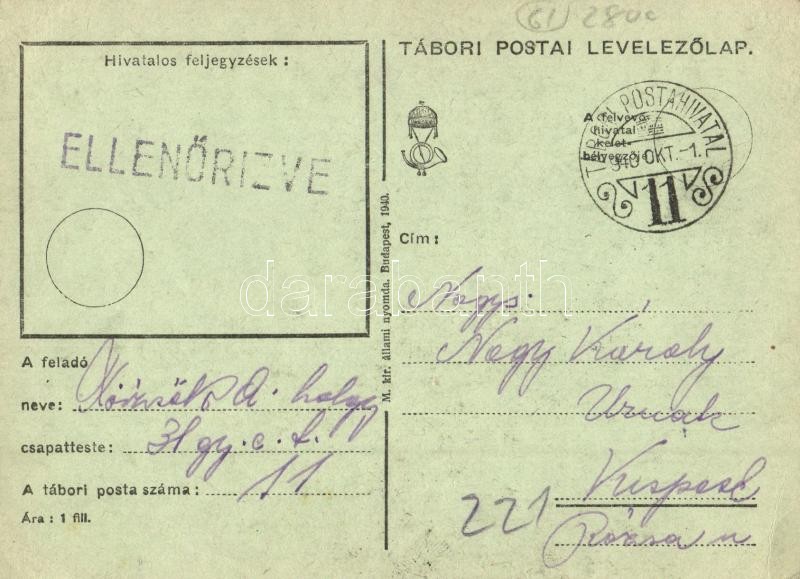 (61) 280
Hivatalos feljegyzések :
ELLENŐRIZVE
TÁBORI POSTAI LEVELEZŐLAP.
A felvevő
hivatal
kelet-
bélyegzője
TÁBORI POSTAHIVATAL
940 OKT.-1.
11
M. kir. állami nyomda. Budapest, 1940.
darabanth
Cím :
Nags.
Nagy Károly
Urnak
Kispest
Rózsa u
221
A feladó
neve: A.
csapatteste : 31 gy. e.
A tábori posta száma : 11
Ára : 1 fill.